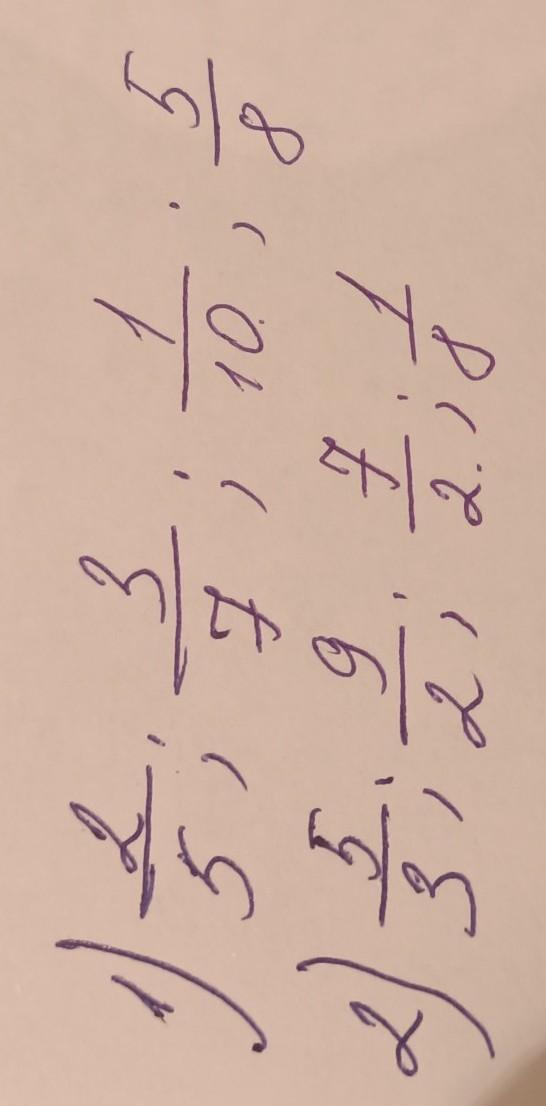 1) 2/5; 3/7; 1/10; 5/8
2) 5/3; 9/2; 7/2; 1/8